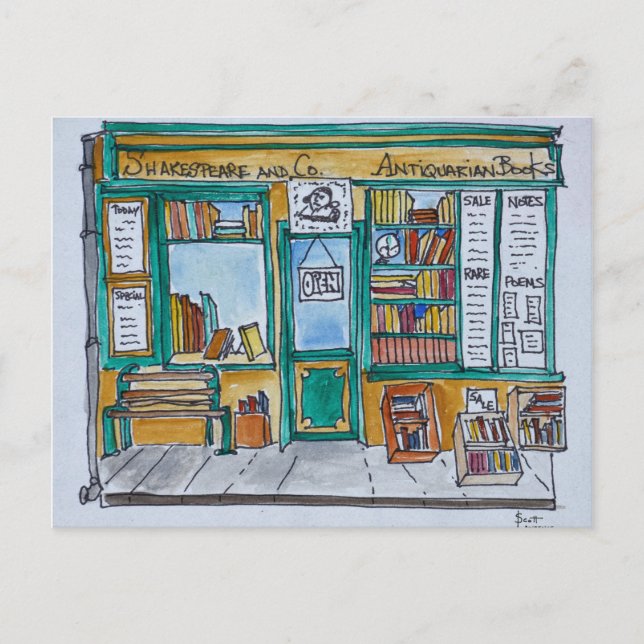 SHAKESPEARE AND CO. ANTIQUARIAN BOOKS
TODAY
SPECIAL
OPEN
SALE
RARE
NOTES
POEMS
SALE
Scott